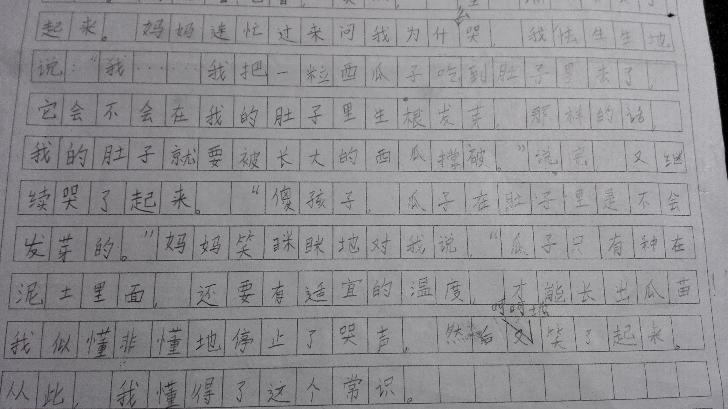 起来。妈妈连忙过来问我为什么哭，我怯生生地
说：“我……我把一粒西瓜子吃到肚子里去了，
它会不会在我的肚子里生根发芽，那样的话，
我的肚子就要被长大的西瓜撑破。”说完，又继
续哭了起来。“傻孩子，瓜子在肚子里是不会
发芽的。”妈妈笑眯眯地对我说，“瓜子只有种在
泥土里面，还要有适宜的温度，才能长出瓜苗
我似懂非懂地停止了哭声，然后呵呵地笑了起来。
从此，我懂得了这个常识。